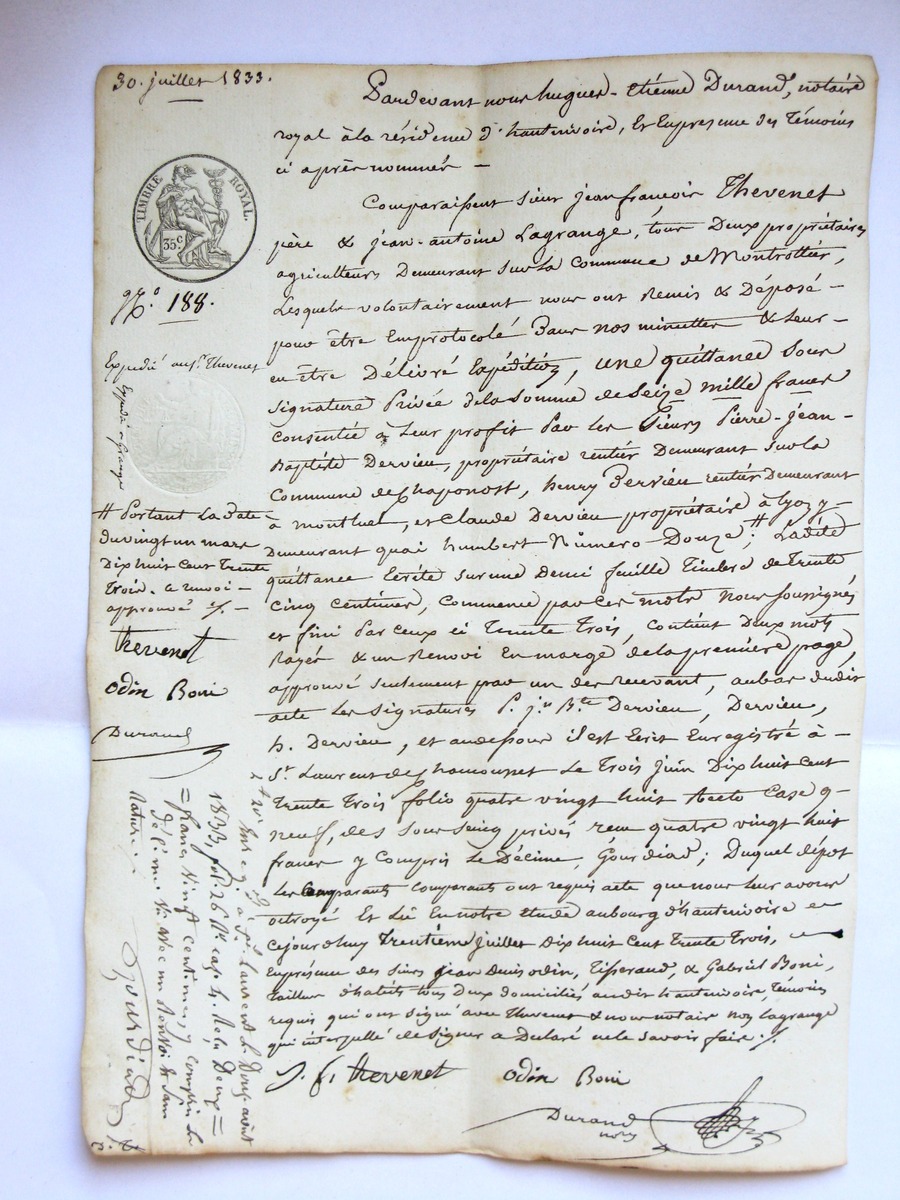 30. juillet 1833.
TIMBRE ROYAL.
35 c.
N.º 188.
Expedié au s.r Thevenet
Expedié a Grange
# Portant La Date
du vingt un mars
Dix huit cent Trente
Trois. a renvoi
approuvé ./. —
Thevenet
Odin Boni
Durand
Pardevant nous hugues - Etienne Durand, notaire
royal à la résidence d'hauterivoire, Et En présence des Témoins
ci après nommés —
Comparaissent sieur jean françois Thevenet
père & jean-antoine Lagrange, tous Deux propriétaires
agriculteurs Demeurant sur La Commune de Montrottier,
Lesquels volontairement nous ont Remis & Déposé —
pour être Emprotocolé Dans nos minuttes & Leur —
en être Délivré Expédition, une quittance sous
signature Privée de la somme de seize mille francs
consentie à Leur profit Par Les sieurs Pierre-jean-
Baptiste Dervieu, propriétaire rentier Demeurant sur la
Commune de Chaponost, henry Dervieu rentier Demeurant
à montluel, et Claude Dervieu propriétaire à Lyon y —
Demeurant quai humbert Numero Douze; # Ladite
quittance Ecrite sur une Demi feuille Timbré de Trente
cinq centimes, commence par ces mots Nous soussignés
et fini Par ceux ci Trente Trois, contient Deux mots
Rayés & un Renvoi En marge de la première page,
approuvé seulement par un des recevant, au bas dudit
acte Les signatures P. j.n B.te Dervieu, Dervieu,
h. Dervieu, et au dessous il est Ecrit Enregistré à —
S.t Laurent de Chamousset Le Trois juin Dix huit cent
Trente Trois folio quatre vingt huit Recto Case
neuf, des sous seing privés reçu quatre vingt huit
francs y Compris Le Décime, Gourdiad; Duquel dépot
Les Comparants comparants ont requis acte que nous Leur avons
octroyé Et Lû En notre étude au bourg d'hauterivoire
cejourd'huy Trentième juillet Dix huit cent Trente Trois,
En présence des sieurs jean Denis odin, Tisserand, & Gabriel Boni,
tailleur d'habits tous Deux domiciliés audit hauterivoire, Témoins
requis qui ont signé avec Thevenet & nous notaire non Lagrange
qui interpellé de signer a Déclaré ne le savoir faire ./.
J. f. thevenet
Odin Boni
Durand
no.re
Enreg.é à S.t Laurent Le Douze août
1833, fol. 26 R.o case 4. Reçu Deux
francs vingt centimes y compris Le
Décime. Vu avec un Renvoi & sans
Rature.
Gourdiad